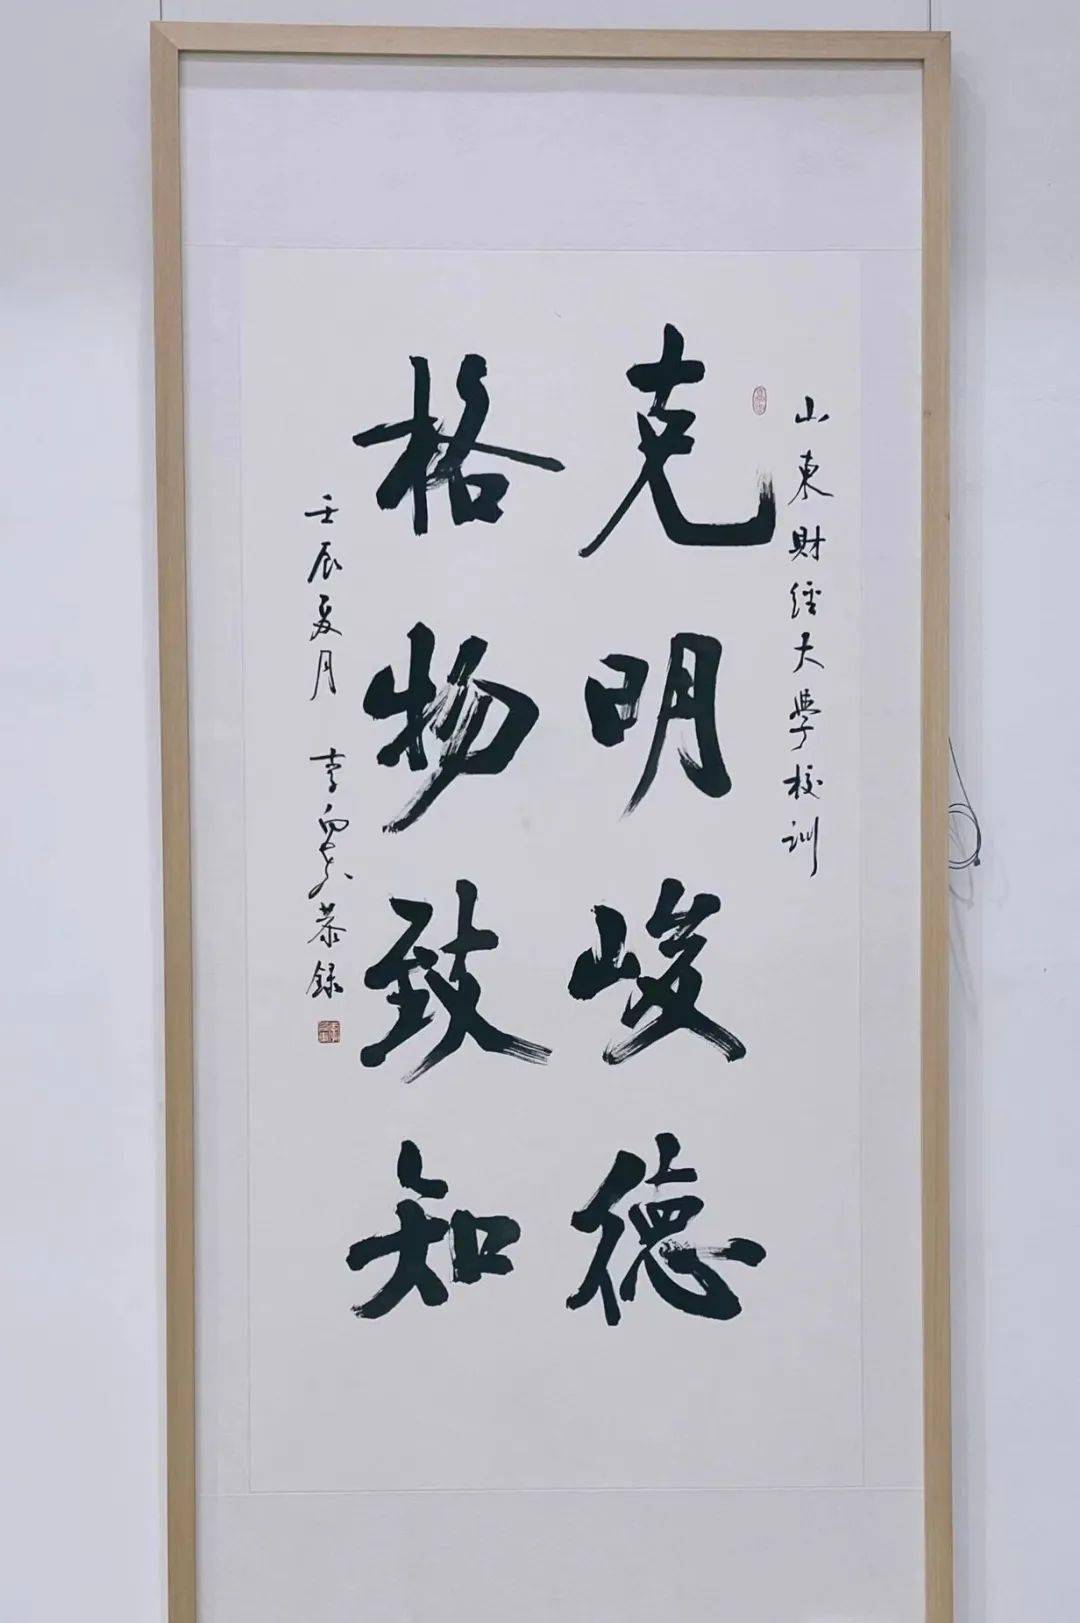 山東財經大學校訓
克明峻德
格物致知
壬辰夏月 李向東恭錄